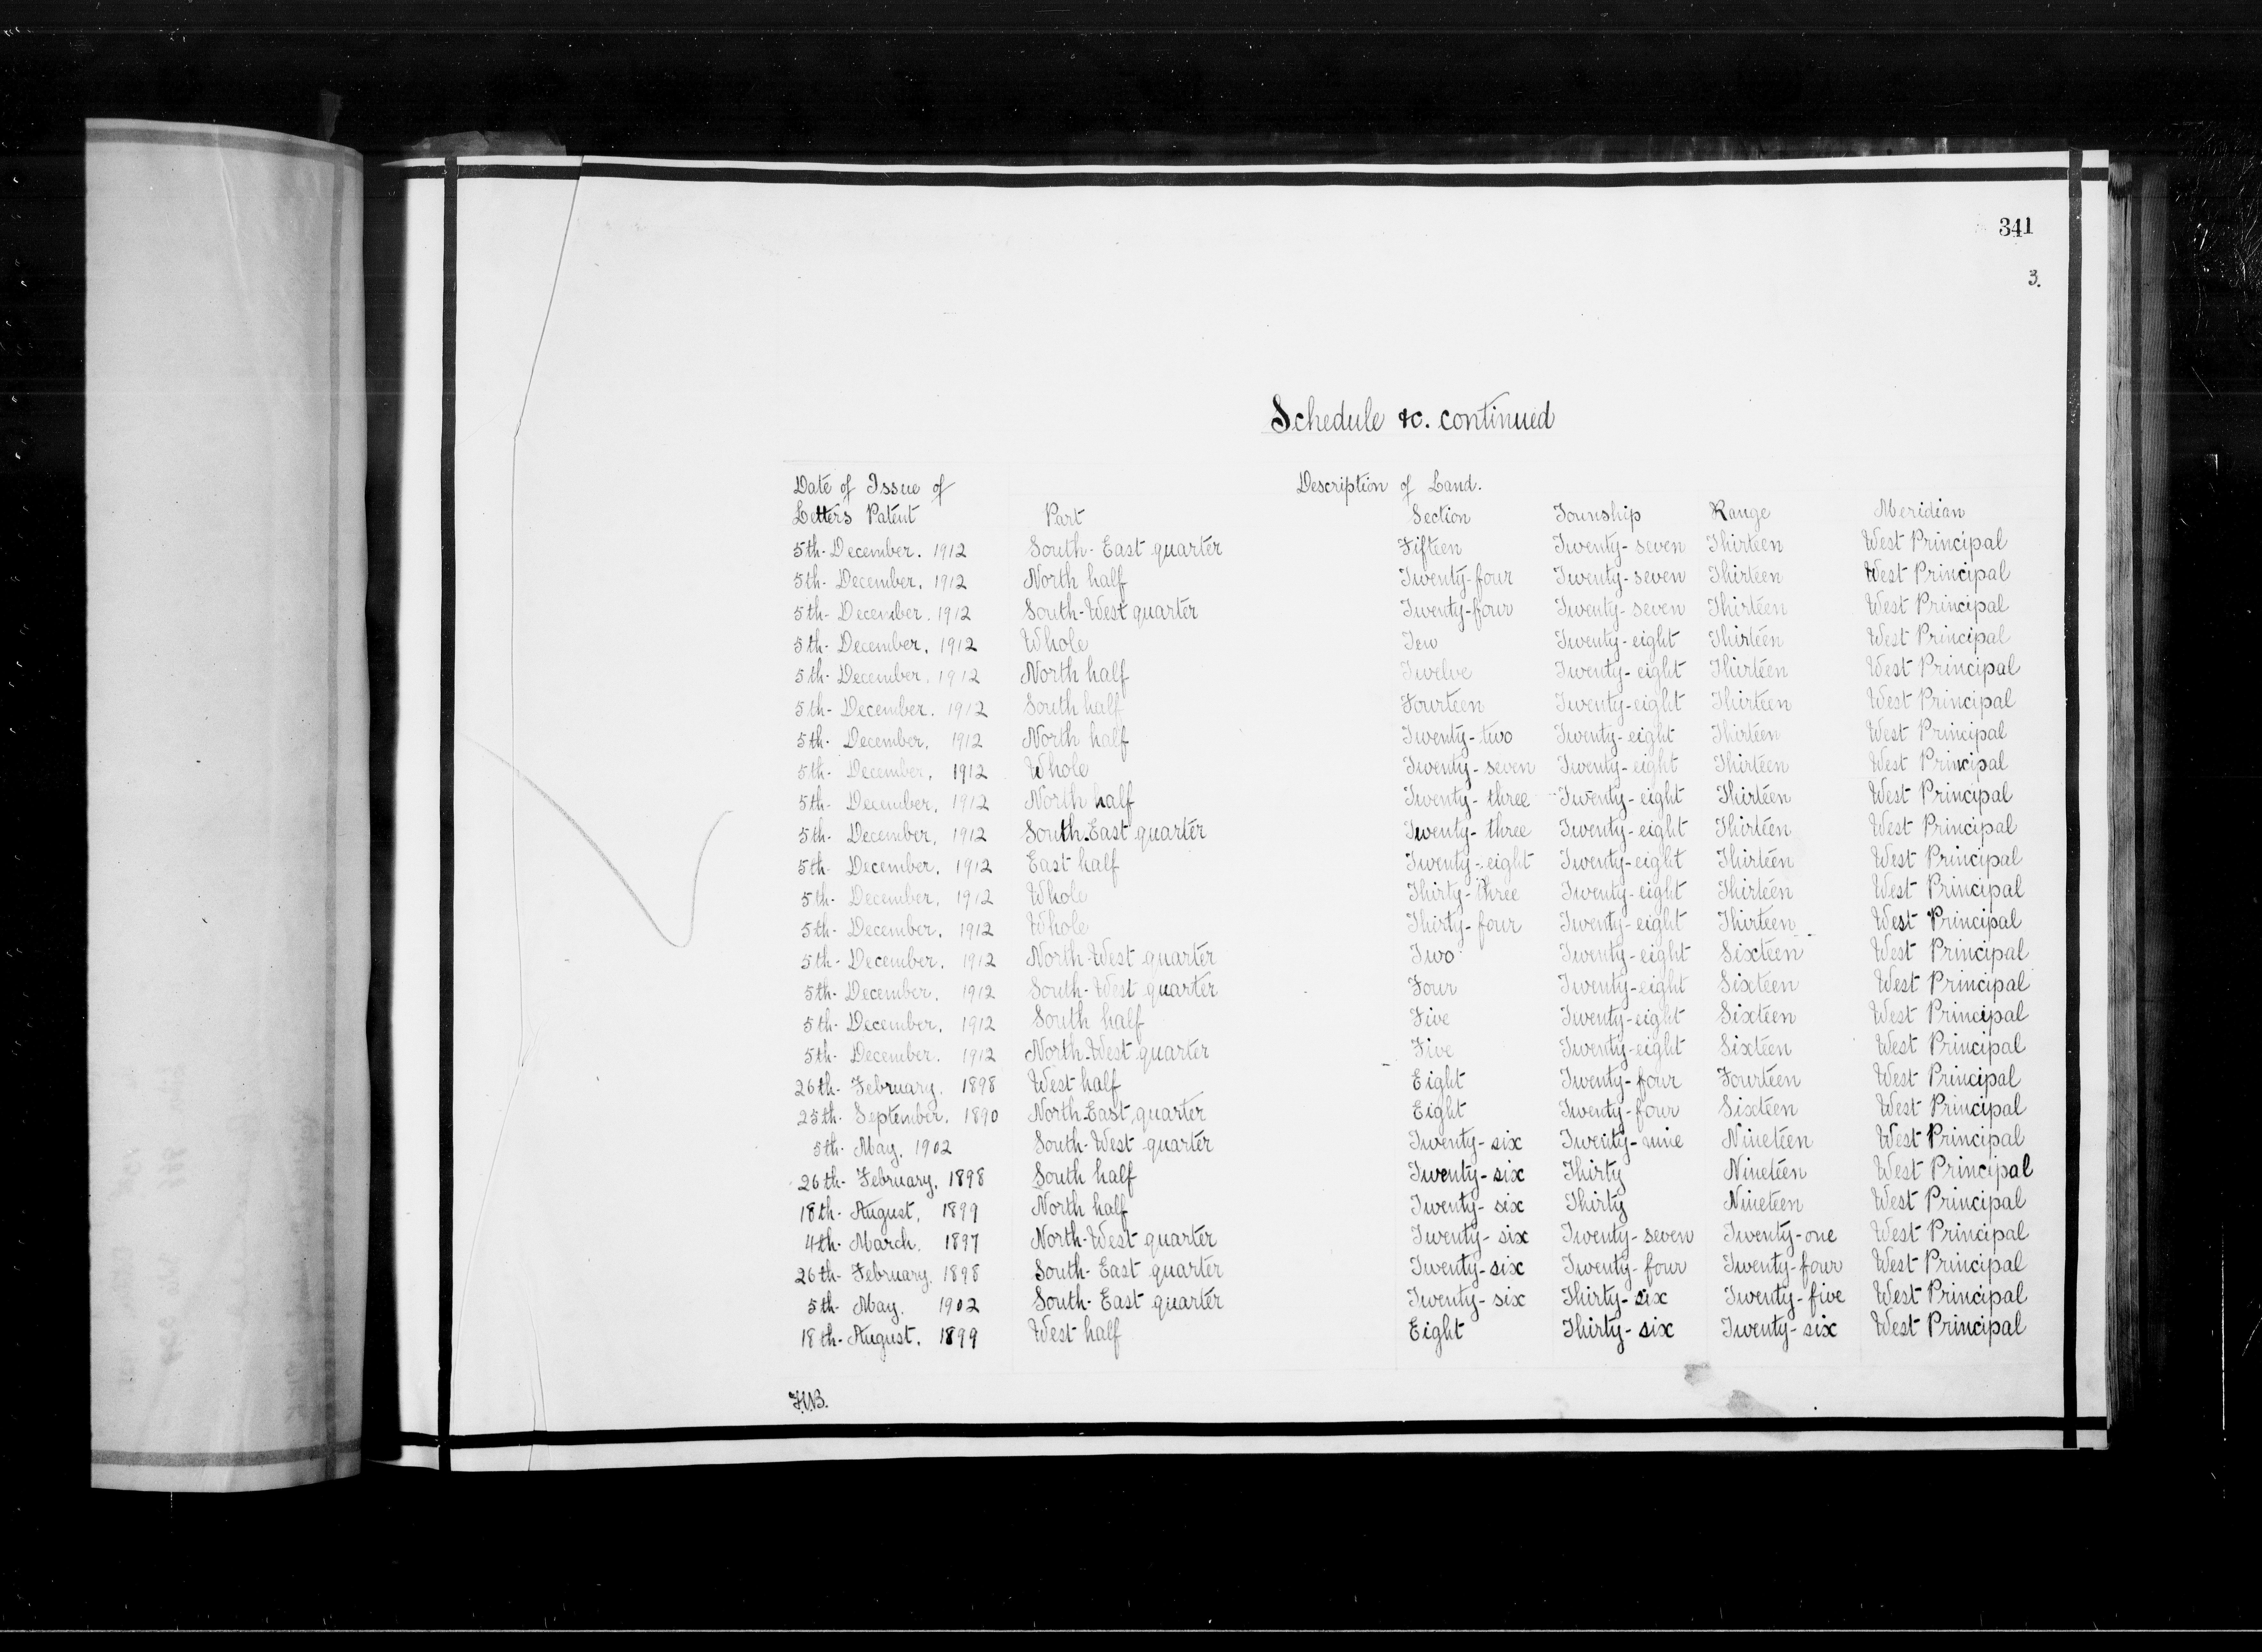 341
3.
Schedule &c. continued
Date of Issue of Description of Land.
Letters Patent Part Section Township Range Meridian
5th- December. 1912 South-East quarter Fifteen Twenty-seven Thirteen West Principal
5th- December. 1912 North half Twenty-four Twenty-seven Thirteen West Principal
5th- December. 1912 South-West quarter Twenty-four Twenty-seven Thirteen West Principal
5th- December. 1912 Whole Ten Twenty-eight Thirteen West Principal
5th- December. 1912 North half Twelve Twenty-eight Thirteen West Principal
5th- December. 1912 South half Fourteen Twenty-eight Thirteen West Principal
5th- December. 1912 North half Twenty-two Twenty-eight Thirteen West Principal
5th- December. 1912 Whole Twenty-seven Twenty-eight Thirteen West Principal
5th- December. 1912 North half Twenty-three Twenty-eight Thirteen West Principal
5th- December. 1912 South-East quarter Twenty-three Twenty-eight Thirteen West Principal
5th- December. 1912 East half Twenty-eight Twenty-eight Thirteen West Principal
5th- December. 1912 Whole Thirty-three Twenty-eight Thirteen West Principal
5th- December. 1912 Whole Thirty-four Twenty-eight Thirteen West Principal
5th- December. 1912 North-West quarter Two Twenty-eight Sixteen West Principal
5th- December. 1912 South-West quarter Four Twenty-eight Sixteen West Principal
5th- December. 1912 South half Five Twenty-eight Sixteen West Principal
5th- December. 1912 North-West quarter Five Twenty-eight Sixteen West Principal
26th- February. 1898 West half Eight Twenty-four Fourteen West Principal
25th- September. 1890 North-East quarter Eight Twenty-four Sixteen West Principal
5th- May. 1902 South-West quarter Twenty-six Twenty-nine Nineteen West Principal
26th- February. 1898 South half Twenty-six Thirty Nineteen West Principal
18th- August. 1899 North half Twenty-six Thirty Nineteen West Principal
4th- March. 1897 North-West quarter Twenty-six Twenty-seven Twenty-one West Principal
26th- February. 1898 South-East quarter Twenty-six Twenty-four Twenty-four West Principal
5th- May. 1902 South-East quarter Twenty-six Thirty-six Twenty-five West Principal
18th- August. 1899 West half Eight Thirty-six Twenty-six West Principal